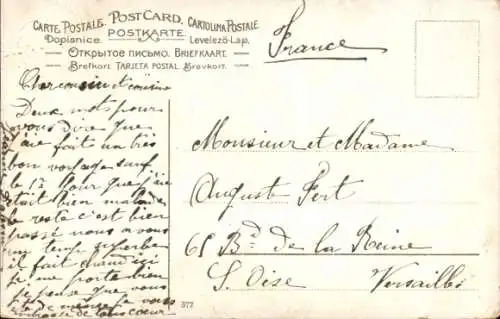 CARTE POSTALE. POSTCARD. CARTOLINA POSTALE.
Dopisnice POSTKARTE Levelező-Lap.
ОТКРЫТОЕ ПИСЬМО. BRIEFKAART.
Brefkort. TARJETA POSTAL. Brevkort.
France
Cher cousin et cousine
Deux mots pour
vous dire que
j'ai fait un très
bon voyage sauf
le 1er jour que j'ai
était bien malade
le reste c'est bien
passé nous avons
un temps superbe
il fait chaud ici
je me porte bien
je pense que vous
de même je vous
embrasse de tous coeur
Monsieur et Madame
Auguste Fert
65 Bd de la Reine
S. Oise Versailles
372